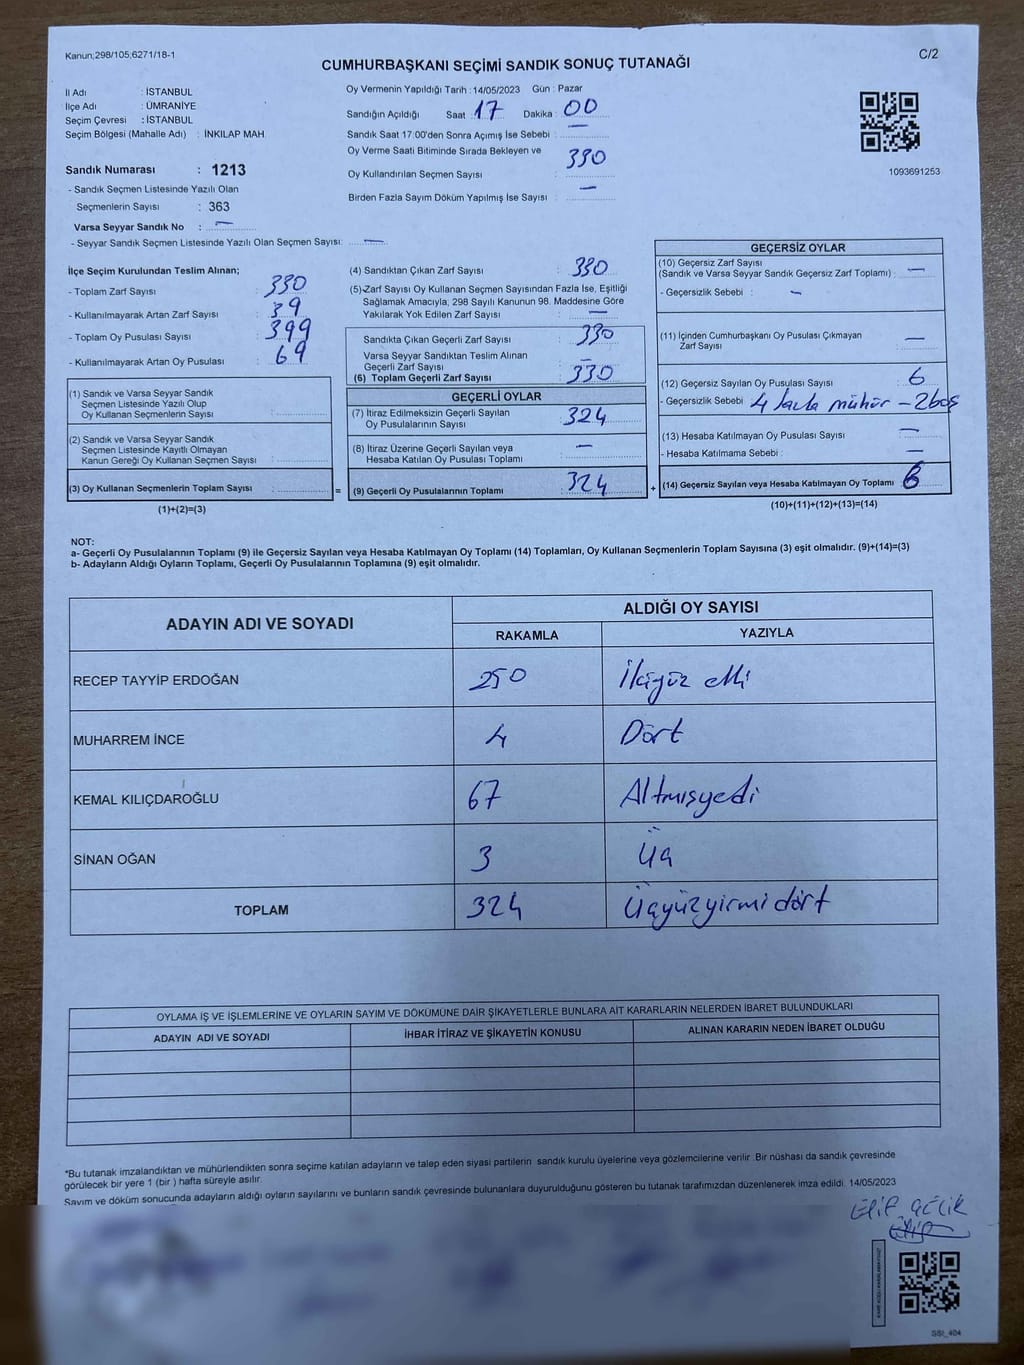 Kanun;298/105;6271/18-1
C/2
CUMHURBAŞKANI SEÇİMİ SANDIK SONUÇ TUTANAĞI
İl Adı : İSTANBUL
İlçe Adı : ÜMRANİYE
Seçim Çevresi : İSTANBUL
Seçim Bölgesi (Mahalle Adı) : İNKILAP MAH.
Sandık Numarası : 1213
- Sandık Seçmen Listesinde Yazılı Olan
Seçmenlerin Sayısı : 363
Varsa Seyyar Sandık No : —
- Seyyar Sandık Seçmen Listesinde Yazılı Olan Seçmen Sayısı: —
Oy Vermenin Yapıldığı Tarih : 14/05/2023 Gün : Pazar
Sandığın Açıldığı Saat 17 Dakika : 00
Sandık Saat 17:00'den Sonra Açımış İse Sebebi : —
Oy Verme Saati Bitiminde Sırada Bekleyen ve
Oy Kullandırılan Seçmen Sayısı : 330
Birden Fazla Sayım Döküm Yapılmış İse Sayısı : —
1093691253
İlçe Seçim Kurulundan Teslim Alınan;
- Toplam Zarf Sayısı : 330
- Kullanılmayarak Artan Zarf Sayısı : 39
- Toplam Oy Pusulası Sayısı : 399
- Kullanılmayarak Artan Oy Pusulası : 69
(1) Sandık ve Varsa Seyyar Sandık
Seçmen Listesinde Yazılı Olup
Oy Kullanan Seçmenlerin Sayısı :
(2) Sandık ve Varsa Seyyar Sandık
Seçmen Listesinde Kayıtlı Olmayan
Kanun Gereği Oy Kullanan Seçmen Sayısı :
(3) Oy Kullanan Seçmenlerin Toplam Sayısı :
(1)+(2)=(3)
(4) Sandıktan Çıkan Zarf Sayısı : 330
(5)-Zarf Sayısı Oy Kullanan Seçmen Sayısından Fazla İse, Eşitliği
Sağlamak Amacıyla, 298 Sayılı Kanunun 98. Maddesine Göre
Yakılarak Yok Edilen Zarf Sayısı : —
Sandıkta Çıkan Geçerli Zarf Sayısı : 330
Varsa Seyyar Sandıktan Teslim Alınan
Geçerli Zarf Sayısı : —
(6) Toplam Geçerli Zarf Sayısı : 330
GEÇERLİ OYLAR
(7) İtiraz Edilmeksizin Geçerli Sayılan
Oy Pusulalarının Sayısı : 324
(8) İtiraz Üzerine Geçerli Sayılan veya
Hesaba Katılan Oy Pusulası Toplamı : —
= (9) Geçerli Oy Pusulalarının Toplamı : 324
GEÇERSİZ OYLAR
(10) Geçersiz Zarf Sayısı
(Sandık ve Varsa Seyyar Sandık Geçersiz Zarf Toplamı) : —
- Geçersizlik Sebebi : —
(11) İçinden Cumhurbaşkanı Oy Pusulası Çıkmayan
Zarf Sayısı : —
(12) Geçersiz Sayılan Oy Pusulası Sayısı : 6
- Geçersizlik Sebebi : 4 fazla mühür - 2 boş
(13) Hesaba Katılmayan Oy Pusulası Sayısı : —
- Hesaba Katılmama Sebebi : —
+ (14) Geçersiz Sayılan veya Hesaba Katılmayan Oy Toplamı : 6
(10)+(11)+(12)+(13)=(14)
NOT:
a- Geçerli Oy Pusulalarının Toplamı (9) ile Geçersiz Sayılan veya Hesaba Katılmayan Oy Toplamı (14) Toplamları, Oy Kullanan Seçmenlerin Toplam Sayısına (3) eşit olmalıdır. (9)+(14)=(3)
b- Adayların Aldığı Oyların Toplamı, Geçerli Oy Pusulalarının Toplamına (9) eşit olmalıdır.
ADAYIN ADI VE SOYADI
ALDIĞI OY SAYISI
RAKAMLA YAZIYLA
RECEP TAYYİP ERDOĞAN 250 İkiyüz elli
MUHARREM İNCE 4 Dört
KEMAL KILIÇDAROĞLU 67 Altmışyedi
SİNAN OĞAN 3 Üç
TOPLAM 324 Üçyüzyirmi dört
OYLAMA İŞ VE İŞLEMLERİNE VE OYLARIN SAYIM VE DÖKÜMÜNE DAİR ŞİKAYETLERLE BUNLARA AİT KARARLARIN NELERDEN İBARET BULUNDUKLARI
ADAYIN ADI VE SOYADI İHBAR İTİRAZ VE ŞİKAYETİN KONUSU ALINAN KARARIN NEDEN İBARET OLDUĞU
*Bu tutanak imzalandıktan ve mühürlendikten sonra seçime katılan adayların ve talep eden siyasi partilerin sandık kurulu üyelerine veya gözlemcilerine verilir .Bir nüshası da sandık çevresinde
görülecek bir yere 1 (bir ) hafta süreyle asılır.
Sayım ve döküm sonucunda adayların aldığı oyların sayılarını ve bunların sandık çevresinde bulunanlara duyurulduğunu gösteren bu tutanak tarafımızdan düzenlenerek imza edildi. 14/05/2023
Elif
SSI_404